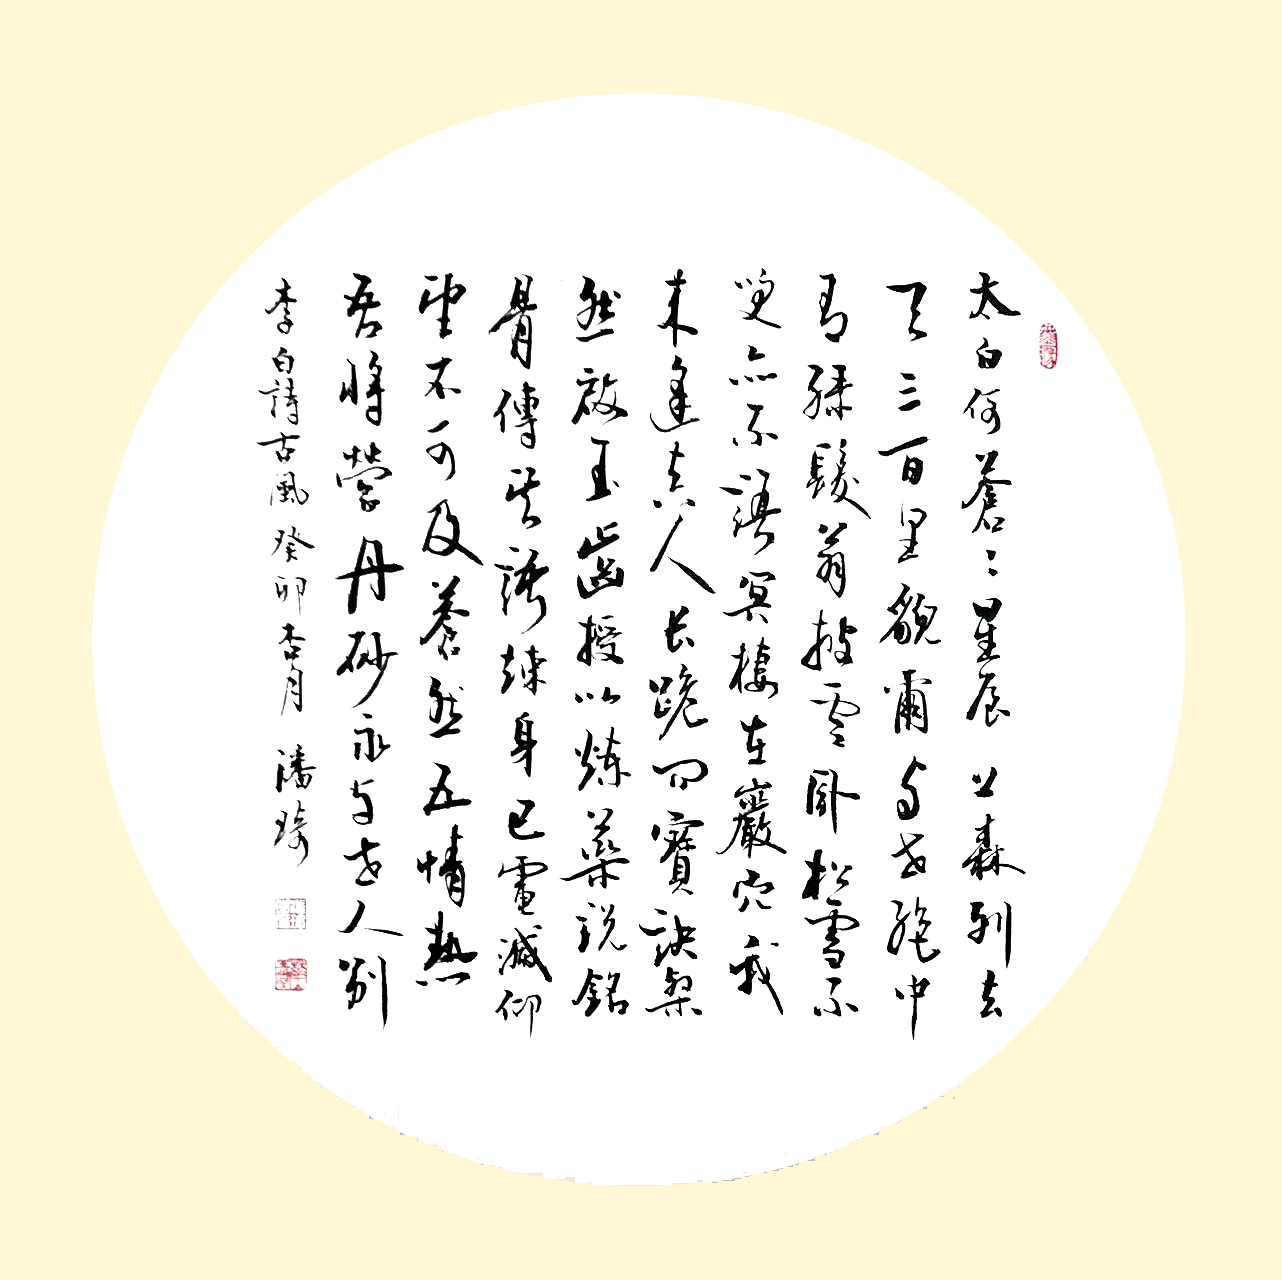 太白何蒼〻星辰上森列去
天三百里貌爾与世絕中
有綠髮翁披雲臥松雪不
笑亦不語冥棲在巖穴我
来逢真人長跪問寶訣粲
然啟玉齒授以煉藥說銘
骨傳其語竦身已電滅仰
望不可及蒼然五情熱
吾將營丹砂永与世人別
李白詩古風 癸卯杏月 潘琦